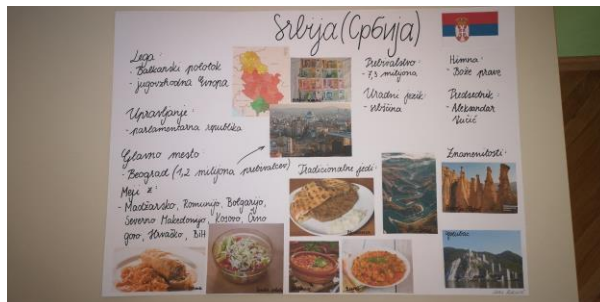 Srbija (Србија)
Lega:
- Balkanski polotok
- jugovzhodna Evropa
Upravljanje:
- parlamentarna republika
Glavno mesto:
- Beograd (1,2 milijona prebivalcev)
Meji z:
- Madžarsko, Romunijo, Bolgarijo,
Severno Makedonijo, Kosovo, Črno
goro, Hrvaško, BiH
Prebivalstvo:
- 7,3 milijona
Uradni jezik:
- srbščina
Himna:
- Bože pravde
Predsednik:
- Aleksandar
Vučić
Tradicionalne jedi:
Znamenitosti: